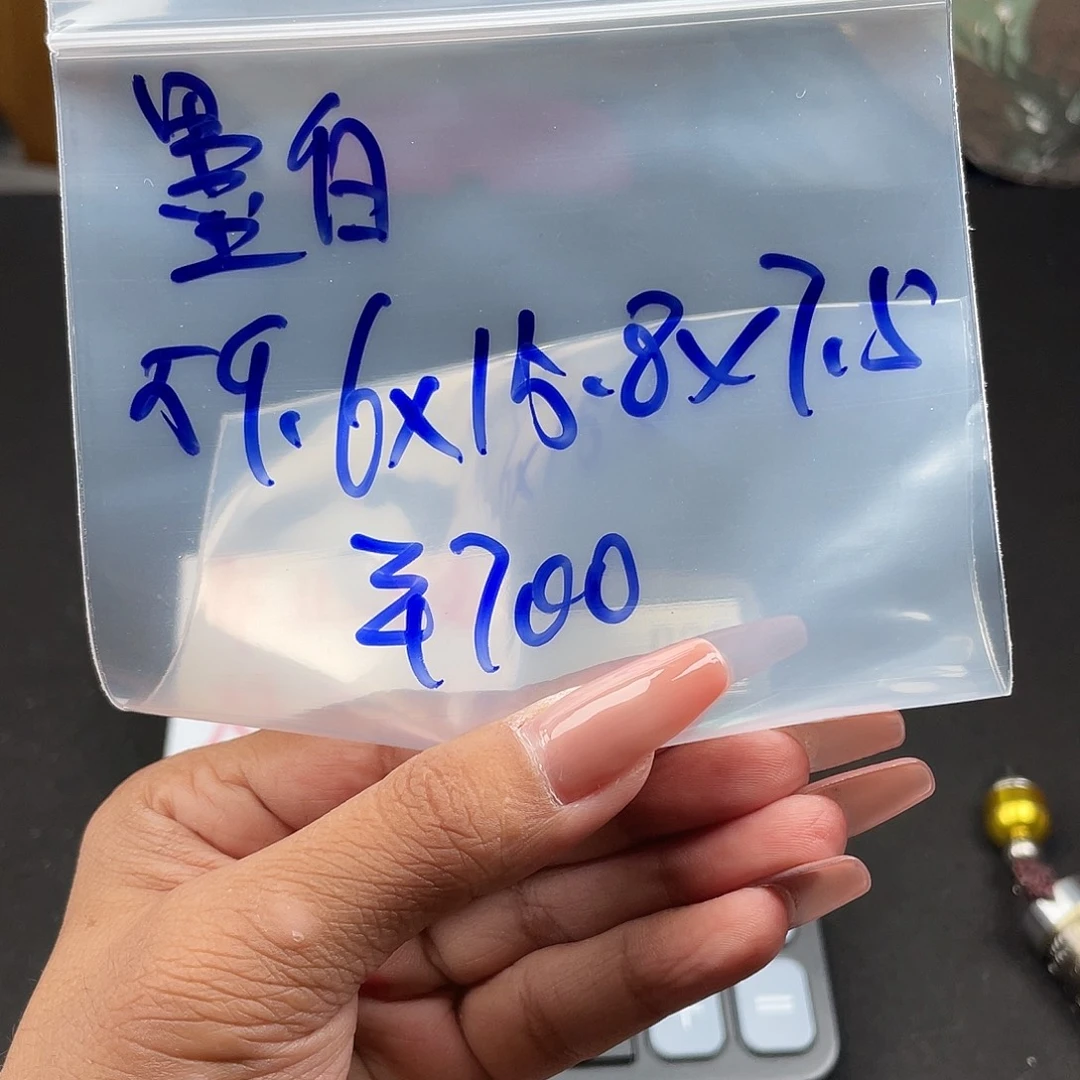 墨白
59.6x15.8x7.5
¥700